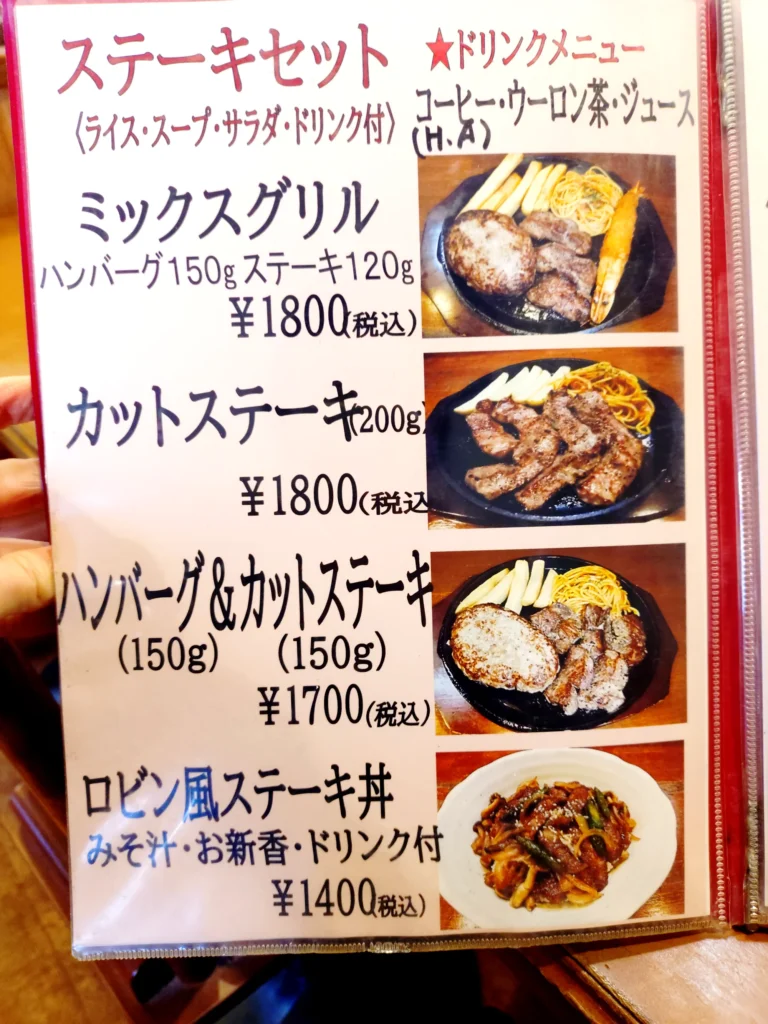 ステーキセット
〈ライス・スープ・サラダ・ドリンク付〉
★ドリンクメニュー
コーヒー・ウーロン茶・ジュース
(H.A)
ミックスグリル
ハンバーグ150g ステーキ120g
¥1800(税込)
カットステーキ(200g)
¥1800(税込
ハンバーグ&カットステーキ
(150g) (150g)
¥1700(税込)
ロビン風ステーキ丼
みそ汁・お新香・ドリンク付
¥1400(税込)